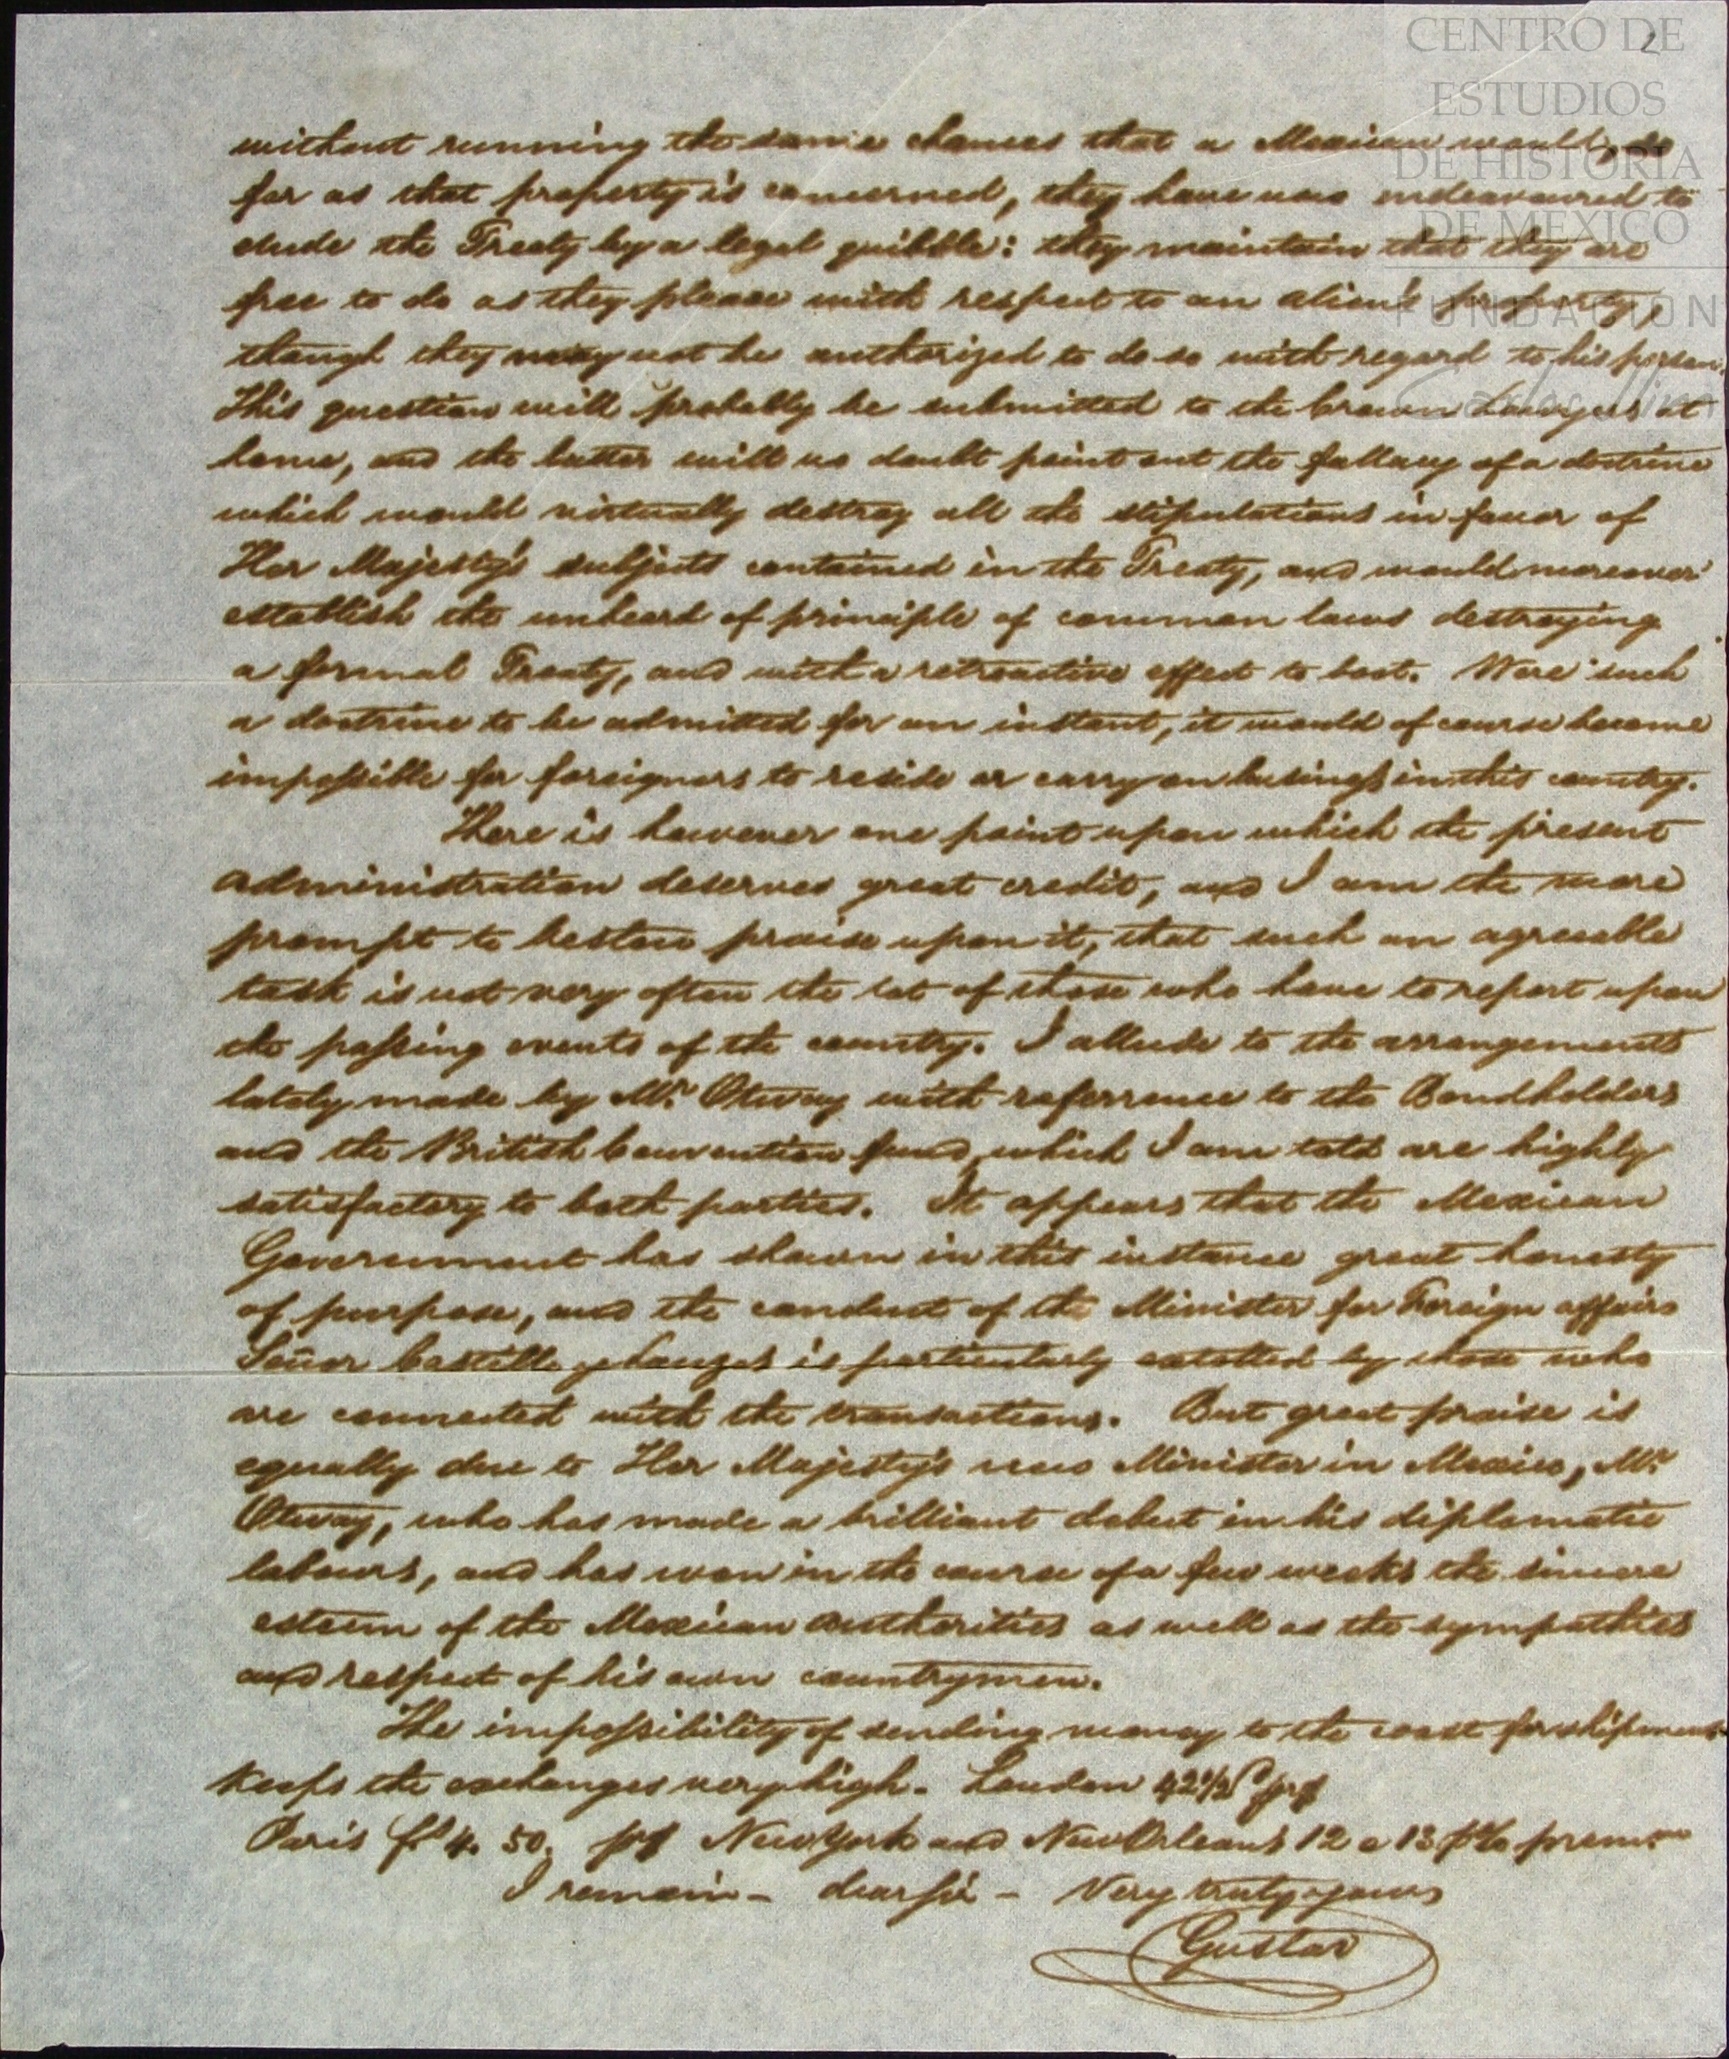 CENTRO DE
ESTUDIOS
DE HISTORIA
DE MEXICO
FUNDACION
Carlos Slim
2
without running the same chances that a Mexican would, so
far as that property is concerned, they have now endeavoured to
elude the Treaty by a legal quibble: they maintain that they are
free to do as they please with respect to an alien's property,
though they may not be authorized to do so with regard to his person.
This question will probably be submitted to the Crown Lawyers at
home, and the latter will no doubt point out the fallacy of a doctrine
which would virtually destroy all the stipulations in favor of
Her Majesty's subjects contained in the Treaty, and would moreover
establish the unheard of principle of common laws destroying
a formal Treaty, and with a retroactive effect to boot. Were such
a doctrine to be admitted for an instant, it would of course become
impossible for foreigners to reside or carry on business in this country.
There is however one point upon which the present
administration deserves great credit, and I am the more
prompt to bestow praise upon it, that such an agreeable
task is not very often the lot of those who have to report upon
the passing events of the country. I allude to the arrangements
lately made by Mr. Otway with referrence to the Bondholders
and the British Convention fund, which I am told are highly
satisfactory to both parties. It appears that the Mexican
Government has shown in this instance great honesty
of purpose, and the conduct of the Minister for Foreign affairs
Señor Castillo y Lanzas is particularly extolled by those who
are connected with the transactions. But great praise is
equally due to Her Majesty's new Minister in Mexico, Mr.
Otway, who has made a brilliant debut in his diplomatic
labours, and has won in the course of a few weeks the sincere
esteem of the Mexican authorities as well as the sympathies
and respect of his own countrymen.
The impossibility of sending money to the coast for shipment
keeps the exchanges very high. London 42 1/2
Paris f. 4. 50. New York and New Orleans 12 a 13 p% prem.
I remain - dear sir - Very truly yours
Gustav